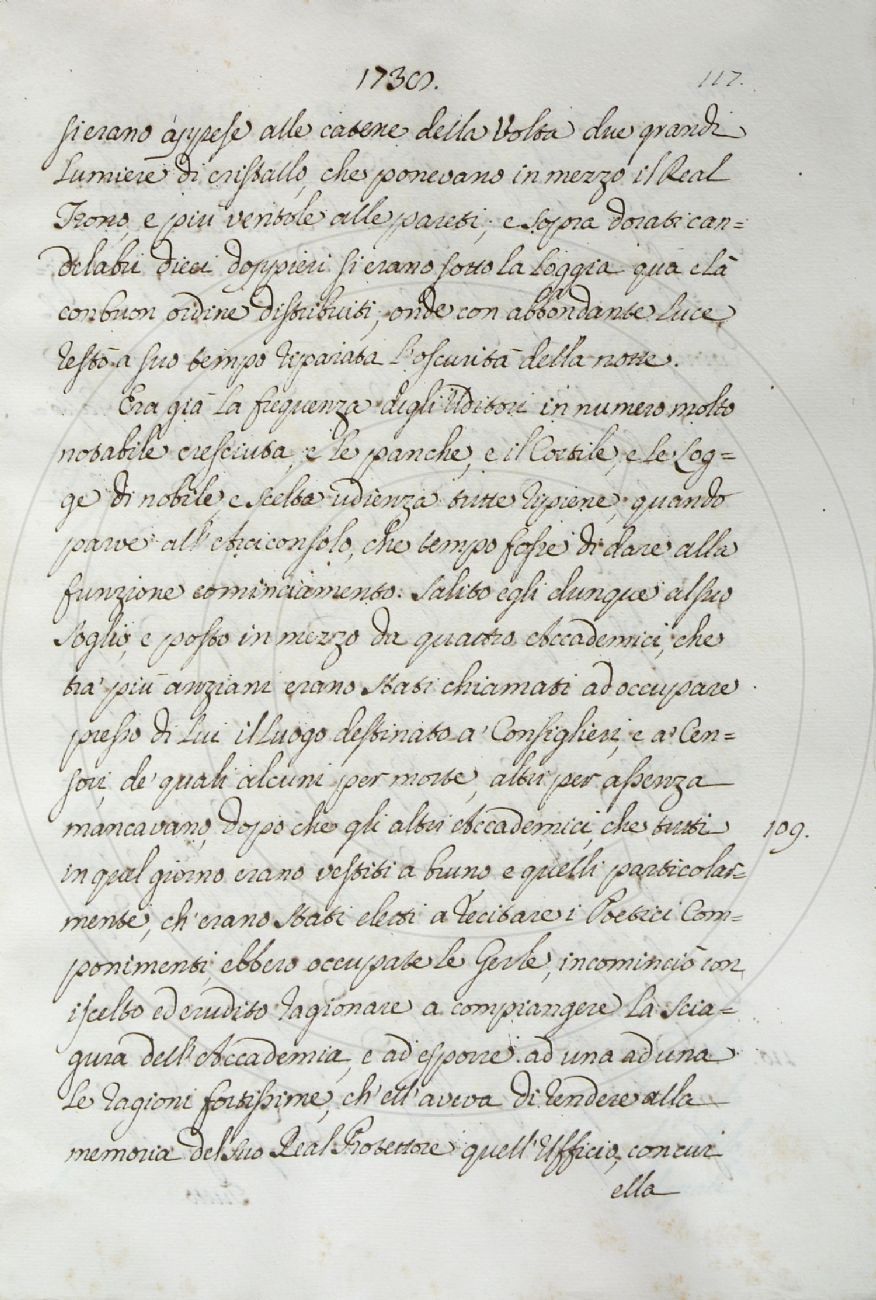 1738. 117.
si erano appese alle catene della Volta due grandi
Lumiere di cristallo, che ponevano in mezzo il Real
Trono, e più ventole alle pareti; e sopra dorati can=
delabri dieci doppieri si erano sotto la Loggia qua e là
con buon ordine distribuiti, onde con abbondante Luce
restò a suo tempo riparata l'oscurità della notte.
Era già la frequenza degli Uditori in numero molto
notabile cresciuta, e le panche, e il Cortile, e le Log=
ge di nobile, e scelta udienza tutte ripiene, quando
parve all'Arciconsolo, che tempo fosse di dare alla
funzione cominciamento. Salito egli dunque al suo
Soglio, e posto in mezzo da quattro Accademici, che
tra' più anziani erano stati chiamati ad occupare
presso di Lui il Luogo destinato a' Consiglieri, e a' Cen=
sori, de' quali alcuni per morte, altri per assenza
mancavano, dopo che gli altri Accademici, che tutti 109.
in quel giorno erano vestiti a bruno e quelli particolar=
mente, ch'erano stati eletti a recitare i Poetici Com=
ponimenti, ebbero occupate le Gerle, incominciò con
iscelto ed erudito ragionare a compiangere la scia=
gura dell'Accademia, e ad esporre ad una ad una
le ragioni fortissime, ch'ell'aveva di rendere alla
memoria del suo Real Protettore quell'Ufficio, con cui
ella